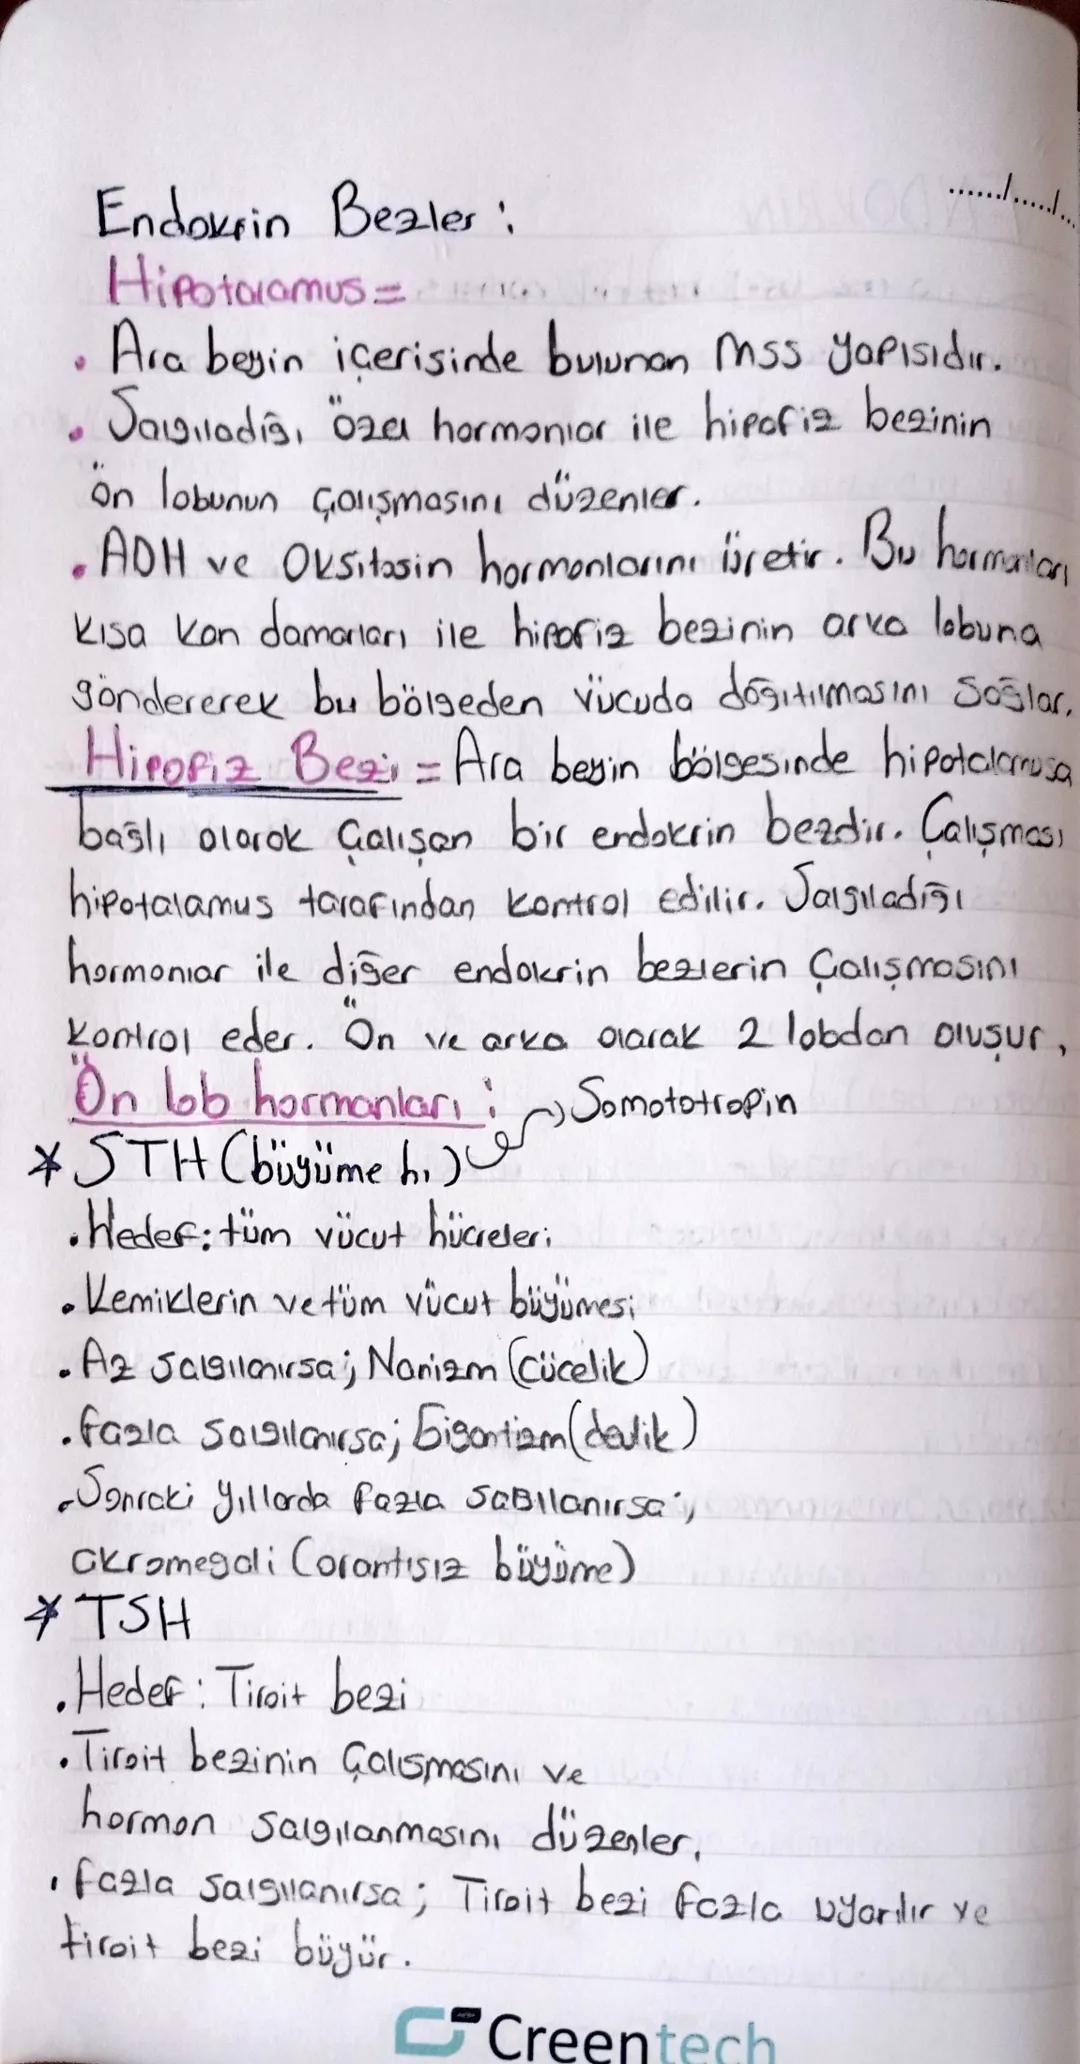 ....../....../...
Endokrin Bezler :
Hipotalamus =
• Ara beyin içerisinde bulunan MSS yapısıdır.
• Salgıladığı özel hormonlar ile hipofiz bezinin
ön lobunun çalışmasını düzenler.
• ADH ve Oksitosin hormonlarını üretir. Bu hormonları
kısa kan damarları ile hipofiz bezinin arka lobuna
göndererek bu bölgeden vücuda dağıtılmasını sağlar.
Hipofiz Bezi = Ara beyin bölgesinde hipotalamusa
bağlı olarak çalışan bir endokrin bezdir. Çalışması
hipotalamus tarafından kontrol edilir. Salgıladığı
hormonlar ile diğer endokrin bezlerin çalışmasını
kontrol eder. Ön ve arka olarak 2 lobdan oluşur.
Ön lob hormonları :
Somototropin
* STH (büyüme h.)
• Hedef: tüm vücut hücreleri
• Kemiklerin ve tüm vücut büyümesi
• Az salgılanırsa; Nanizm (cücelik)
• fazla salgılanırsa; Gigantizm (devlik)
• Sonraki yıllarda fazla salgılanırsa;
akromegali (orantısız büyüme)
* TSH
• Hedef : Tiroit bezi
• Tiroit bezinin çalışmasını ve
hormon salgılanmasını düzenler.
• fazla salgılanırsa; Tiroit bezi fazla uyarılır ve
tiroit bezi büyür.
Creentech